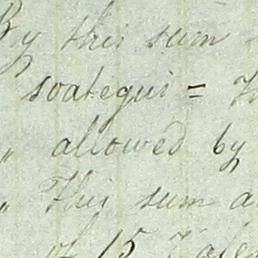 By this sum
soategui =
" allowed by
" This sum
of 15